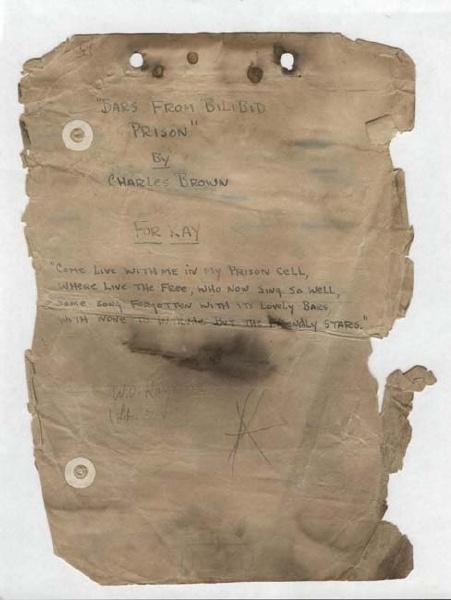 "BARS FROM BILIBID
PRISON"
By
CHARLES BROWN
FOR KAY
"COME LIVE WITH ME IN MY PRISON CELL,
WHERE LIVE THE FREE, WHO NOW SING SO WELL,
SOME SONG FORGOTTEN WITH ITS LOVELY BARS
WITH NONE TO BUT THE FRIENDLY STARS."
W.O.